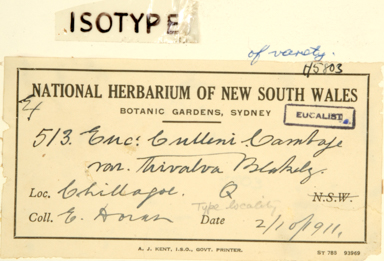 ISOTYPE
of variety.
115803
NATIONAL HERBARIUM OF NEW SOUTH WALES
Ex
BOTANIC GARDENS, SYDNEY
EUCALIST
513. Euc: Culleni Cambage
var. trivalva Blakely
Loc. Chillagoe. Q N.S.W.
Type locality
Coll. E. Horan Date 2/10/1911.
A. J. KENT, I.S.O., GOVT. PRINTER. SY 785 93969